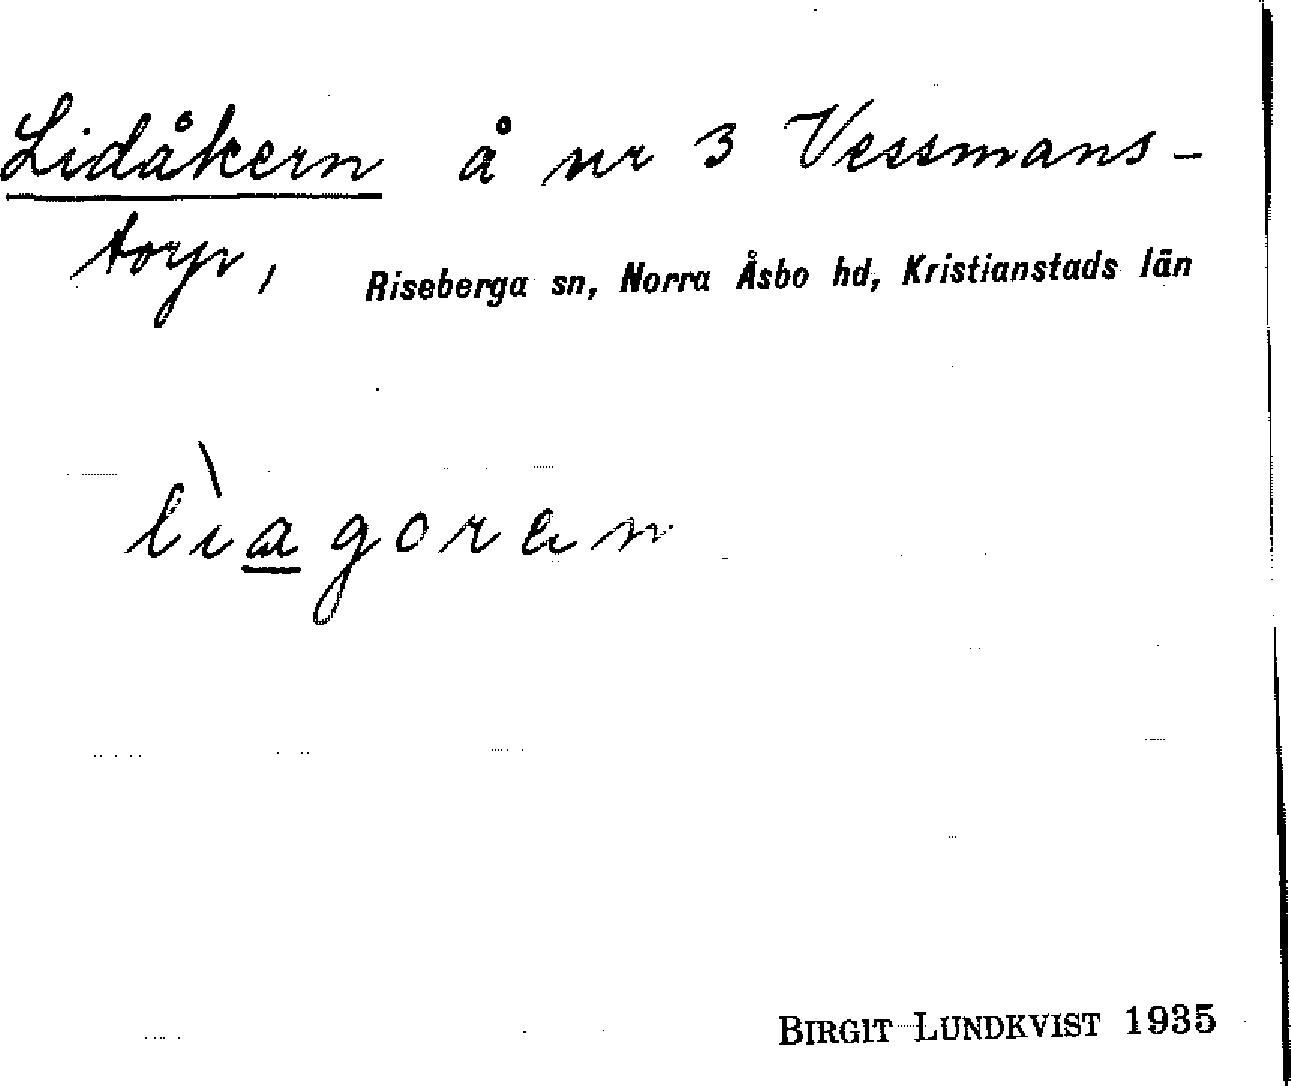 Lidåkern å nr 3 Vessmans-
torp, Riseberga sn, Norra Åsbo hd, Kristianstads län
lìa̲goran
BIRGIT LUNDKVIST 1935